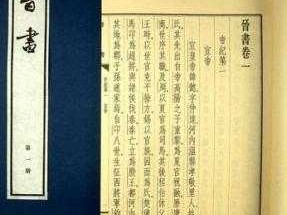 晉書
第一册
晉書卷一
帝紀第一
宣帝
宣皇帝諱懿，字仲達，河內溫縣孝敬里人，姓
其先出自帝高陽之子重黎，爲夏官祝融，歷唐
商，世序其職。及周，以夏官爲司馬。其後程伯休父
王時，以世官克平徐方，錫以官族，因而爲氏。楚漢
馬卬爲趙將，與諸侯伐秦。秦亡，立爲殷王，都河
其地爲郡，子孫遂家焉。自卬八世，生征西將軍鈞